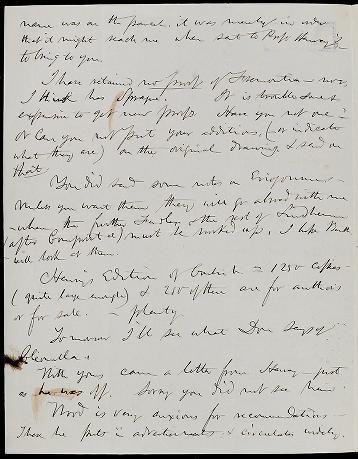 name was on the parcel, it was merely in order
that it might reach me when sent to Prof. Henry's
to bring to you.
I have retained no proof of
I think has Sprague. It is troublesome &
expensive to get new proofs. Have you not one?
Or can you not put your additions, (or indicate
what they are) on the original drawing I send on
that.
You did send some notes on Eriogoneae
Unless you want them they will go abroad with me
- where the further & the rest of
(after Compositae) must be worked up. I hope
will look at them.
Henry's Edition of = 1250 copies
(quite large enough) & 250 of them are for authors
or for sale. - plenty.
Tomorrow I'll see what Don says of
With yours came a letter from Henry - just
as he was off. Sorry you did not see him.
Wood is very anxious for recommendations -
These he puts in advertisements & circulates widely.